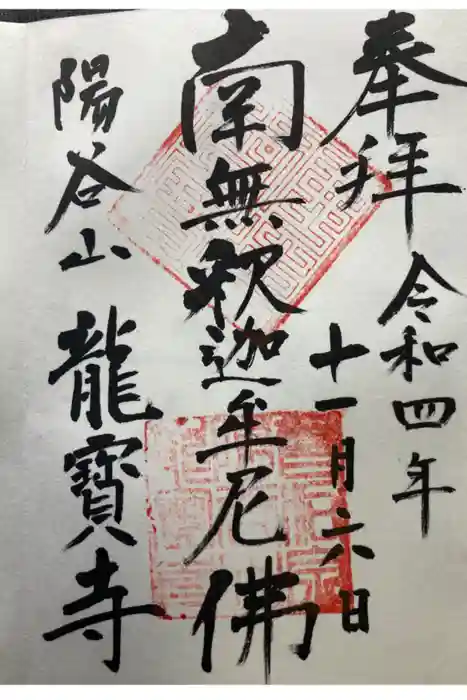 奉拝
令和四年
十一月六日
南無釈迦牟尼佛
陽谷山
龍寳寺